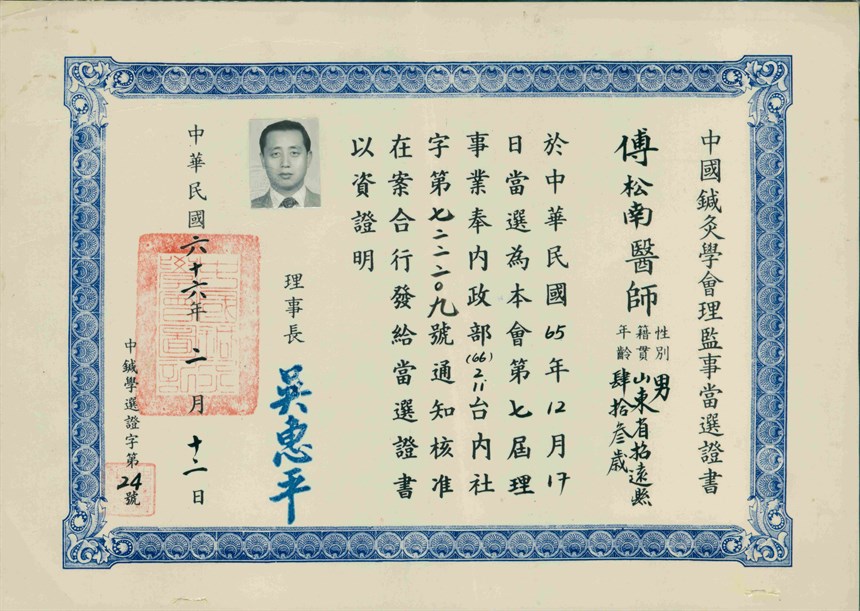 中國鍼灸學會理監事當選證書
傅松南醫師
性別 男
籍貫 山東省招遠縣
年齡 肆拾叁歲
於中華民國65年12月17
日當選為本會第七屆理
事業奉內政部(66)2.11台內社
字第七二二二〇九號通知核准
在案合行發給當選證書
以資證明
理事長 吳惠平
中華民國六十六年二月十二日
中鍼學選證字第24號